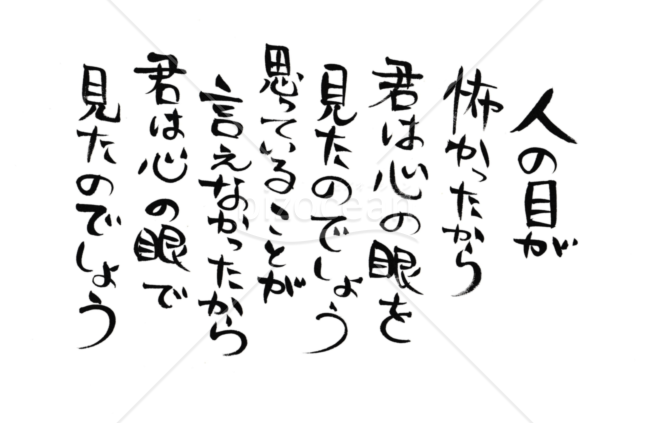 人の目が
怖かったから
君は心の眼を
見たのでしょう
思っていることが
言えなかったから
君は心の眼で
見たのでしょう